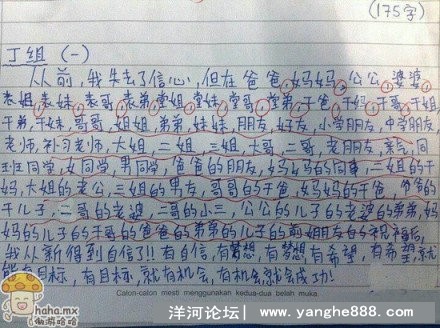 (175字)
丁组 (一)
从前，我失去了信心，但在爸爸，妈妈，公公，婆婆
表姐，表妹，表哥，表弟，堂姐，堂妹，堂哥，堂弟，干爸，干妈，干哥，干姐
干弟，干妹，哥哥，姐姐，弟弟，妹妹，朋友，好友，小学朋友，中学朋友
老师，补习老师，大姐，二姐，三姐，大哥，二哥，老朋友，同
班同学，女同学，男同学，爸爸的朋友，妈妈的同事，二姐的干
妈，大姐的老公，三姐的男友，哥哥的干爸，妈妈的干爸，爸爸的
干儿子，二哥的老婆，二哥的小三，公公的儿子的老婆的弟弟，妈
妈的儿子的干爸的弟弟的儿子的前姐朋友的祝福后，
我从新得到自信了!!有自信，有梦想，有梦想，有希望，有希望，就
有目标，有目标，就有机会，有机会，就会成功!
Caton-caton mesti menggunakan kedua-dua belah muka.
haha.mx
傲游哈哈
洋河论坛| www.yanghe888.com